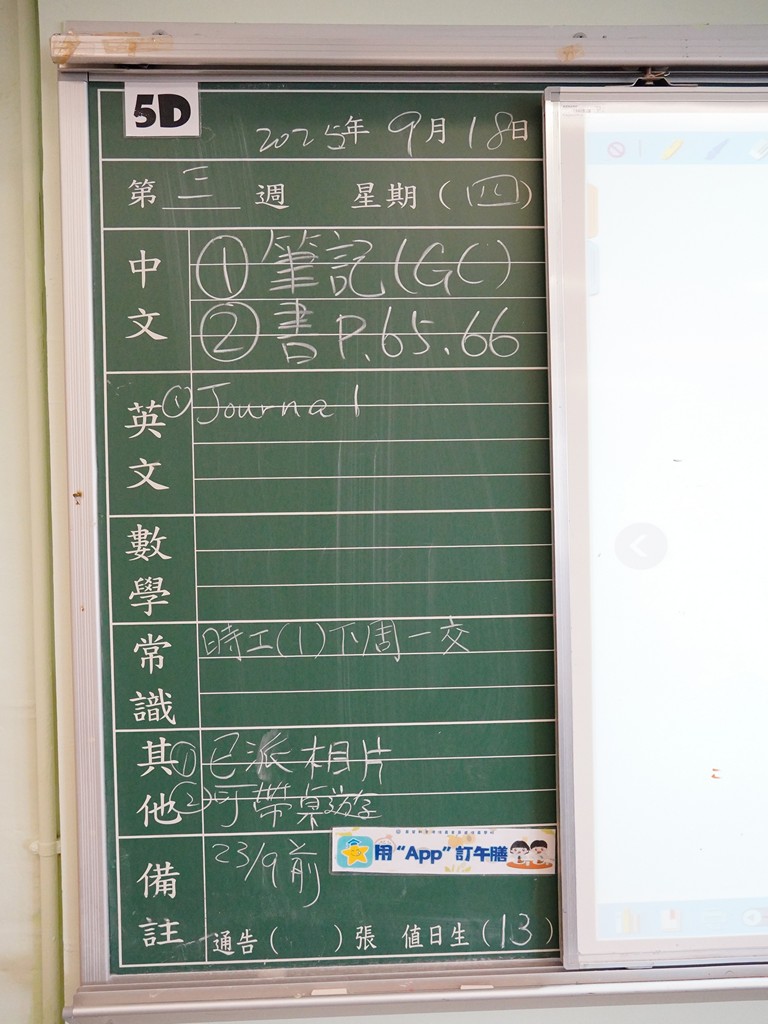 5D
2025年 9月 18日
第 三 週 星期 (四)
中文 ① 筆記 (GC)
② 書 P.65.66
英文 ① Journal
數學
常識 時工(1)下周一交
其他 ① 已派相片
② 可帶桌遊
備註 23/9前
用 “App” 訂午膳
通告 ( ) 張 值日生 (13)